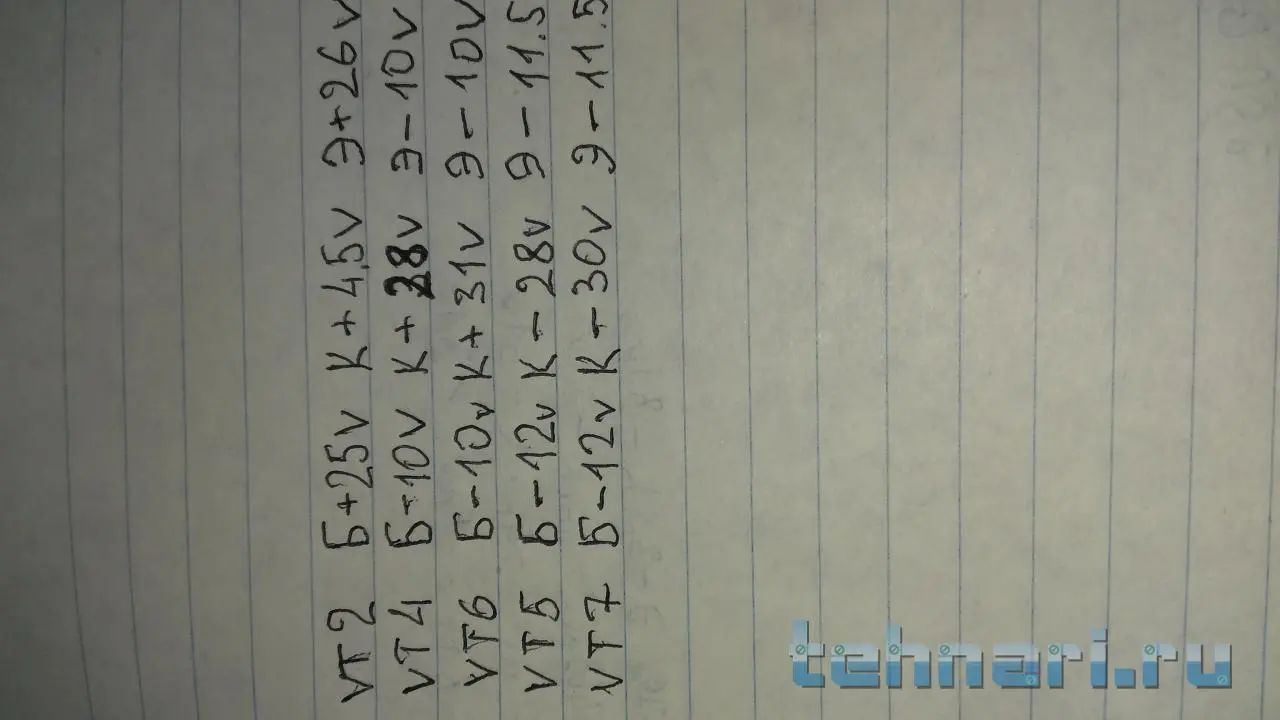 VT2 Б+25v К+45v Э+26v
VT4 Б-10v К+28v Э-10v
VT6 Б-10v К+31v Э-10v
VT5 Б-12v К-28v Э-11.5
VT7 Б-12v К-30v Э-11.5
tehnari.ru